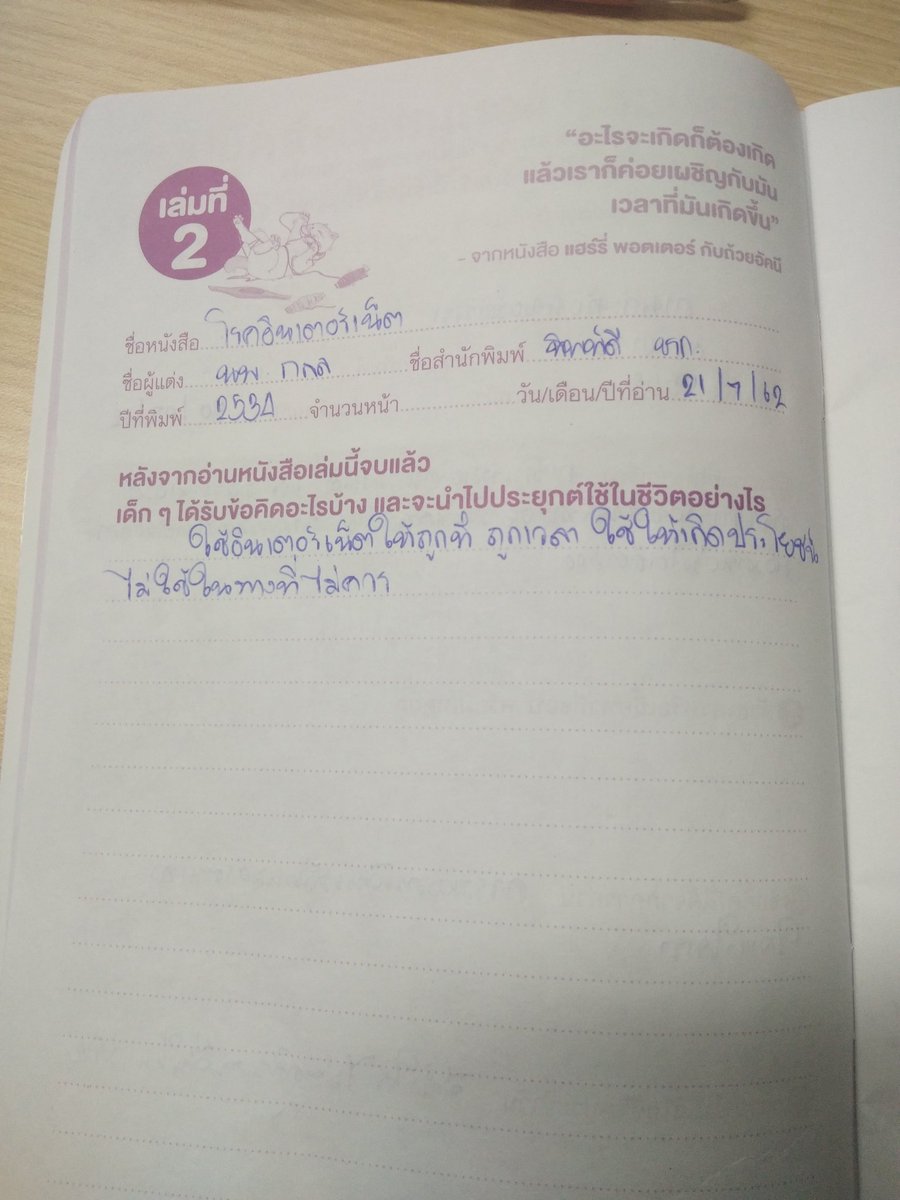 เล่มที่
2
“อะไรจะเกิดก็ต้องเกิด
แล้วเราก็ค่อยเผชิญกับมัน
เวลาที่มันเกิดขึ้น”
- จากหนังสือ แฮร์รี่ พอตเตอร์ กับถ้วยอัคนี
ชื่อหนังสือ โรคอินเตอร์เน็ต
ชื่อผู้แต่ง ชื่อสำนักพิมพ์
ปีที่พิมพ์ 2534 จำนวนหน้า วัน/เดือน/ปีที่อ่าน 21/7/62
หลังจากอ่านหนังสือเล่มนี้จบแล้ว
เด็ก ๆ ได้รับข้อคิดอะไรบ้าง และจะนำไปประยุกต์ใช้ในชีวิตอย่างไร
ใช้อินเตอร์เน็ตให้ถูกที่ ถูกเวลา ใช้ให้เกิดประโยชน์
ไม่ใช้ในทางที่ไม่ควร